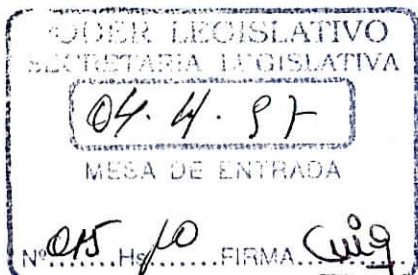 PODER LEGISLATIVO
SECRETARIA LEGISLATIVA
04.4.97
MESA DE ENTRADA
Nº 015 Hs 10 FIRMA